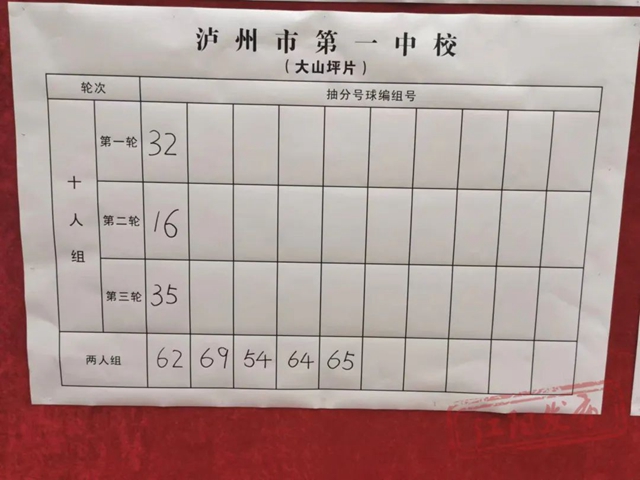 泸州市第一中校
（大山坪片）
轮次 抽分号球编组号
十人组 第一轮 32
第二轮 16
第三轮 35
两人组 62 69 54 64 65